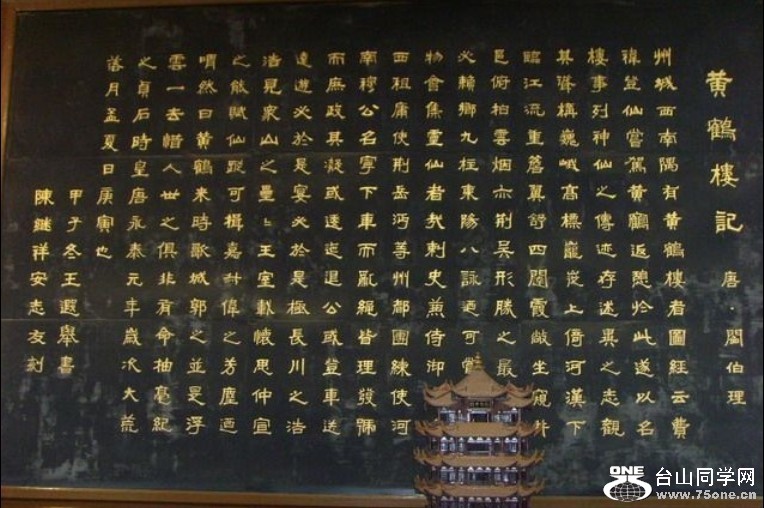 黄鶴樓記
唐·閻伯理
州城西南隅有黄鶴樓者圖經云費
禕登仙嘗駕黄鶴返憩於此遂以名
樓事列神仙之傳迹存述異之志觀
其聳構巍峩高標巃嵸上倚河漢下
臨江流重簷翼舒四闥霞敞坐窺井
邑俯拍雲烟亦荆吴形勝之最
必賴鄉九柱東陽八詠迺可賞
物會集靈仙者哉刺史兼侍御
西租庸使荆岳沔等州都團練使河
南穆公名寧下車而亂繩皆理發號
而庶政其凝或逶迤退公或登車送
遠遊必於是宴必於是極長川之浩
浩見衆山之壘壘王室載懷思仲宣
之能賦仙蹤可揖嘉叔偉之芳塵迺
喟然曰黄鶴來時歌城郭之並是浮
雲一去惜人世之俱非有命抽毫紀
之貞石時皇唐永泰元年歲次大荒
落月孟夏日庚寅也
甲子冬王遐舉書
陳繼祥安志友刻
ONE 台山同学网
www.75one.cn